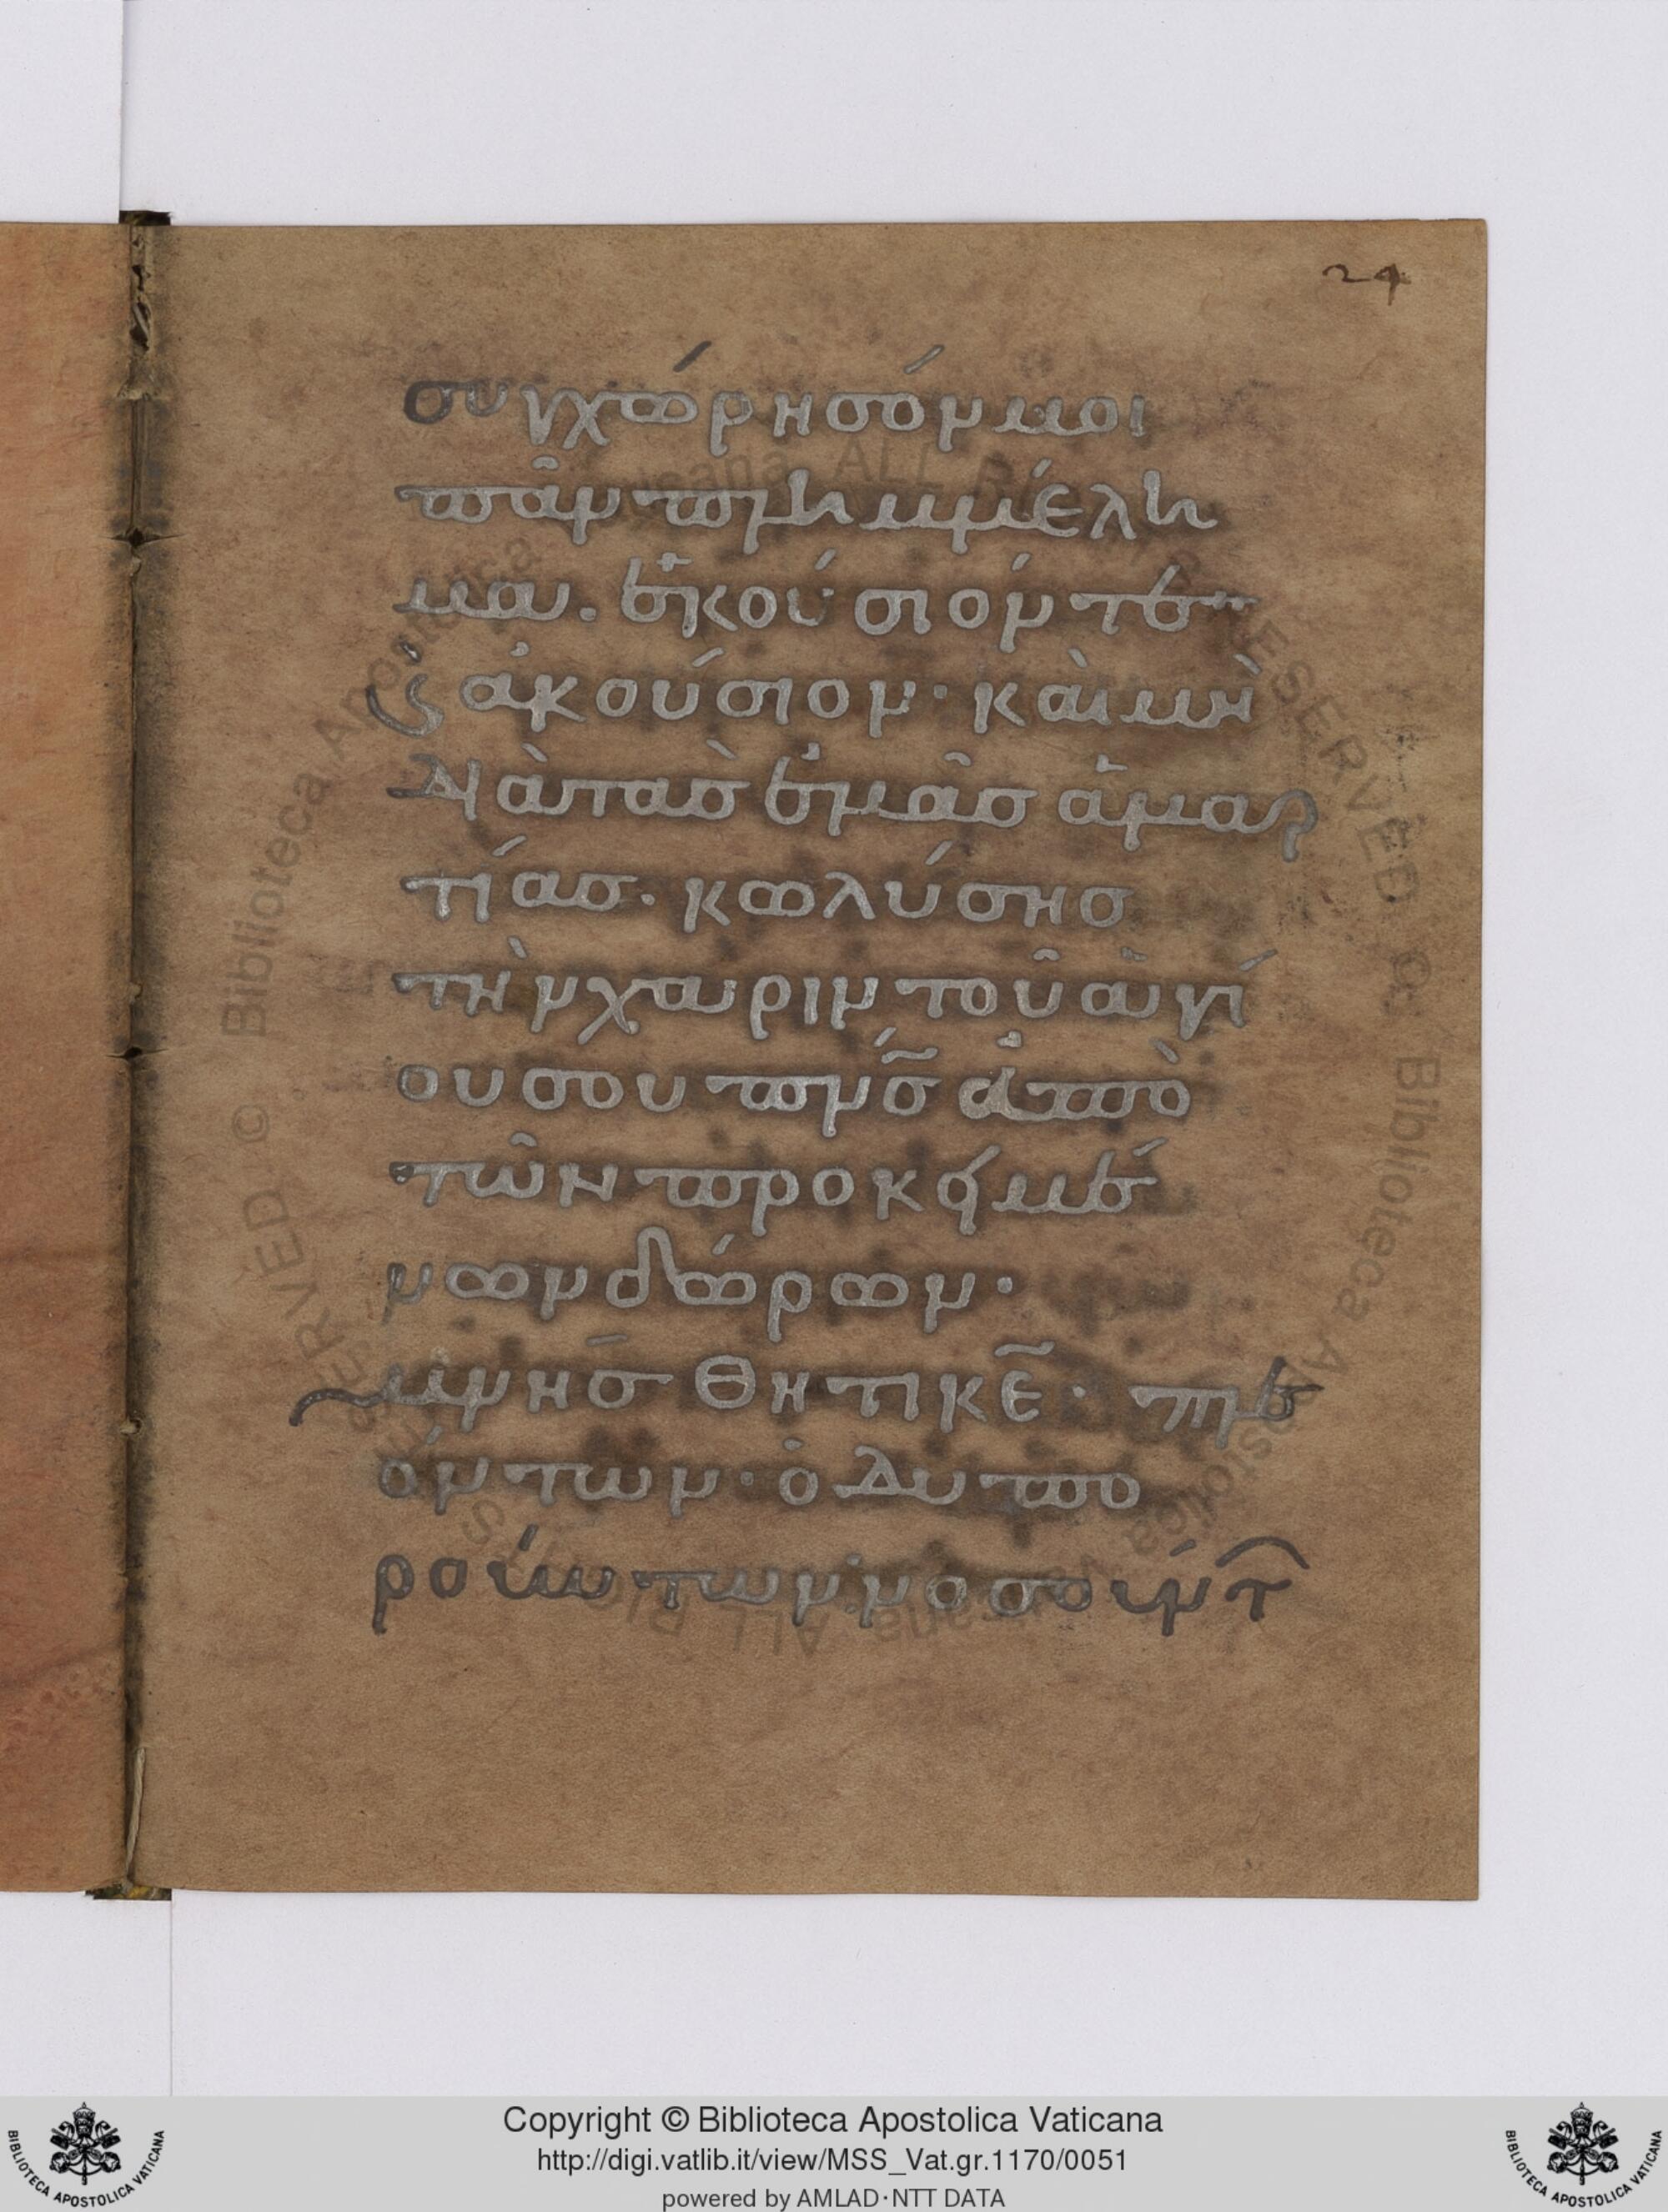 24
συγχώρησόν μοι
πᾶν πλημμέλη
μα. ἑκούσιόν τε
καὶ ἀκούσιον· καὶ μὴ
διὰ τὰς ἐμὰς ἁμαρ
τίας· κωλύσης
τὴν χάριν τοῦ ἁγί
ου σου πν̅ς ἀπὸ
τῶν προκειμέ
νων δώρων·
μνήσθητι κε̅· πλε
όντων· ὁδυπο
ρούντων νοσούντ
Copyright © Biblioteca Apostolica Vaticana
http://digi.vatlib.it/view/MSS_Vat.gr.1170/0051
powered by AMLAD·NTT DATA
BIBLIOTECA APOSTOLICA VATICANA
BIBLIOTECA APOSTOLICA VATICANA